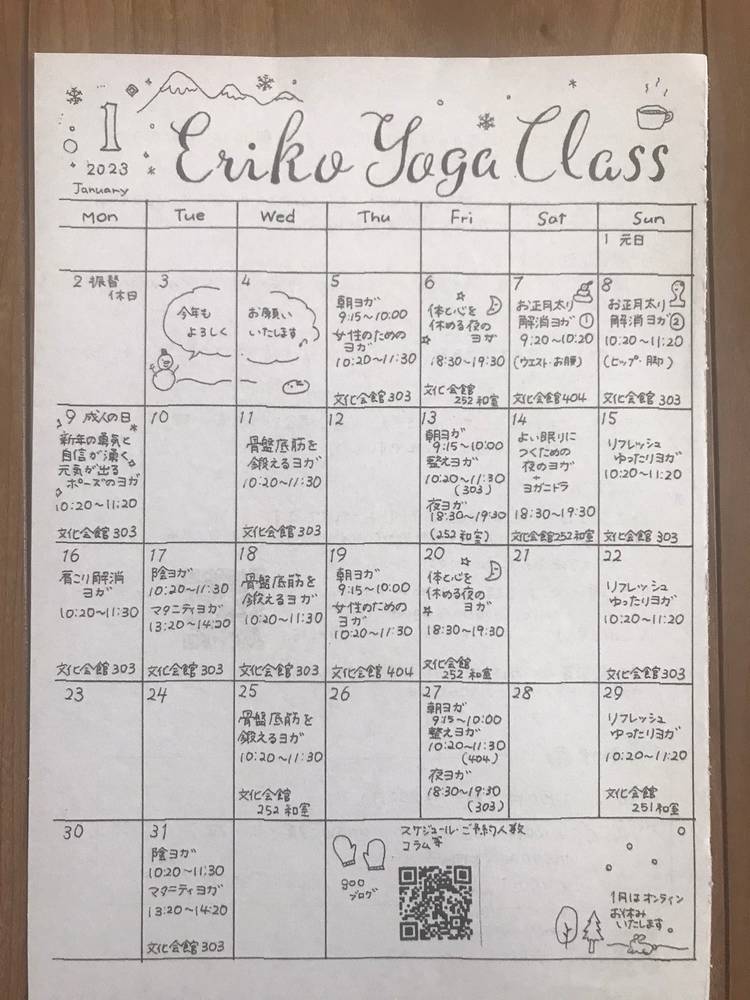 1
2023
January
Eriko Yoga Class
Mon Tue Wed Thu Fri Sat Sun
1 元日
2 振替
休日
3
今年も
よろしく
4
お願い
いたします♪
5
朝ヨガ
9:15〜10:00
女性のための
ヨガ
10:20〜11:30
文化会館303
6
体と心を
休める夜の
ヨガ
18:30〜19:30
文化会館
252和室
7
お正月太り
解消ヨガ①
9:20〜10:20
(ウエスト・お腹)
文化会館404
8
お正月太り
解消ヨガ②
10:20〜11:20
(ヒップ・脚)
文化会館 303
9 成人の日
新年の勇気と
自信が湧く
元気が出る
ポーズのヨガ
10:20〜11:20
文化会館 303
10
11
骨盤底筋を
鍛えるヨガ
10:20〜11:30
文化会館303
12
13
朝ヨガ
9:15〜10:00
整えヨガ
10:20〜11:30
(303)
夜ヨガ
18:30〜19:30
(252和室)
14
よい眠りに
つくための
夜のヨガ
+
ヨガニドラ
18:30〜19:30
文化会館252和室
15
リフレッシュ
ゆったりヨガ
10:20〜11:20
文化会館 303
16
肩こり解消
ヨガ
10:20〜11:30
文化会館303
17
陰ヨガ
10:20〜11:30
マタニティヨガ
13:20〜14:20
文化会館303
18
骨盤底筋を
鍛えるヨガ
10:20〜11:30
文化会館 303
19
朝ヨガ
9:15〜10:00
女性のための
ヨガ
10:20〜11:30
文化会館 404
20
体と心を
休める夜の
ヨガ
18:30〜19:30
文化会館
252 和室
21
22
リフレッシュ
ゆったりヨガ
10:20〜11:20
文化会館303
23
24
25
骨盤底筋を
鍛えるヨガ
10:20〜11:30
文化会館
252 和室
26
27
朝ヨガ
9:15〜10:00
整えヨガ
10:20〜11:30
(404)
夜ヨガ
18:30〜19:30
(303)
28
29
リフレッシュ
ゆったりヨガ
10:20〜11:20
文化会館
251和室
30
31
陰ヨガ
10:20〜11:30
マタニティヨガ
13:20〜14:20
文化会館303
スケジュール・ご予約人数
コラム等
goo
ブログ
1月はオンライン
お休み
いたします。